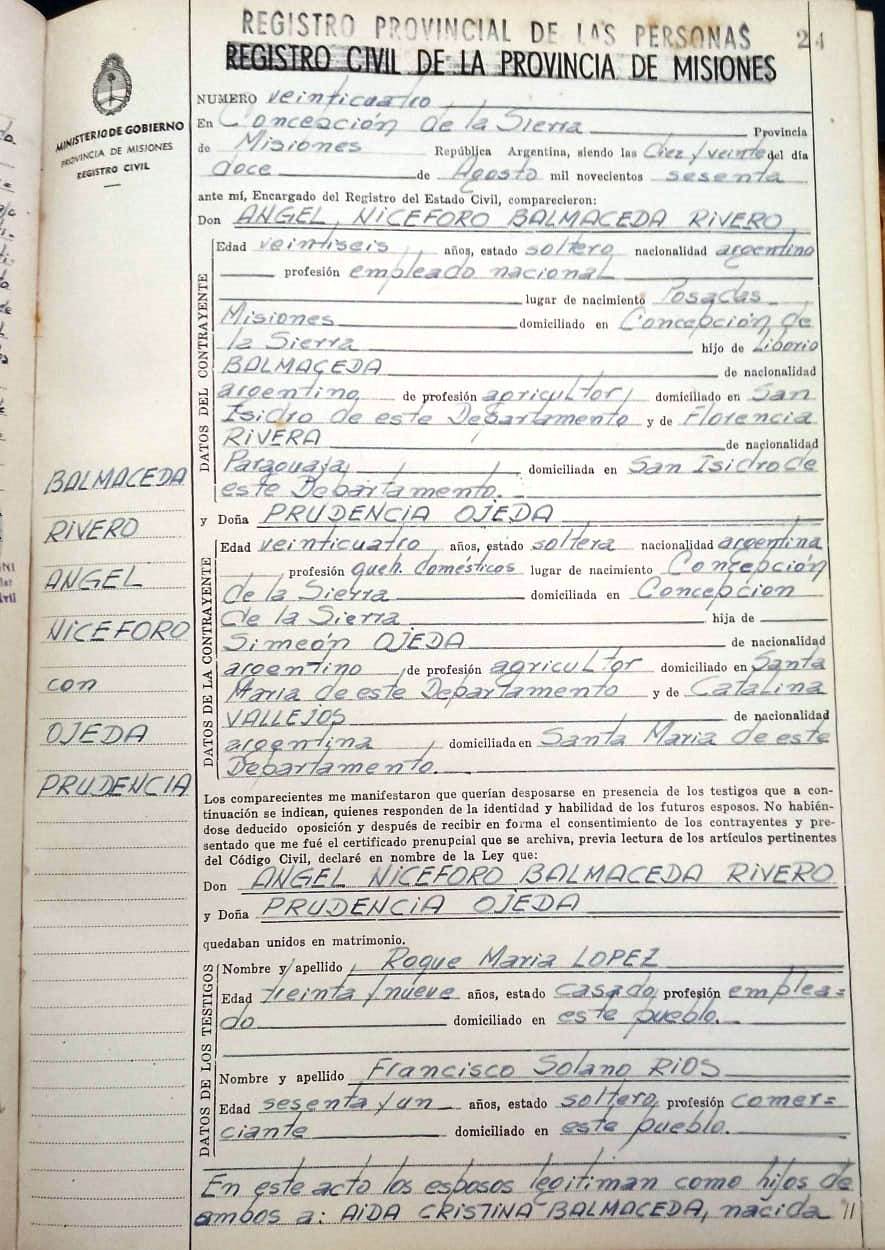 REGISTRO PROVINCIAL DE LAS PERSONAS
24
REGISTRO CIVIL DE LA PROVINCIA DE MISIONES
MINISTERIO DE GOBIERNO
PROVINCIA DE MISIONES
REGISTRO CIVIL
NUMERO veinticuatro
En Concepción de la Sierra Provincia
de Misiones República Argentina, siendo las Diez y veinte del día
doce de Agosto mil novecientos sesenta
ante mí, Encargado del Registro del Estado Civil, comparecieron:
Don ANGEL NICEFORO BALMACEDA RIVERO
DATOS DEL CONTRAYENTE
Edad veintiseis años, estado soltero nacionalidad argentino
profesión empleado nacional
lugar de nacimiento Posadas
Misiones domiciliado en Concepción de
la Sierra hijo de Liborio
BALMACEDA de nacionalidad
argentino de profesión agricultor, domiciliado en San
Isidro de este Departamento y de Florencia
RIVERA de nacionalidad
Paraguaya domiciliada en San Isidro de
este Departamento.
y Doña PRUDENCIA OJEDA
DATOS DE LA CONTRAYENTE
Edad veinticuatro años, estado soltera nacionalidad argentina
profesión queh. domésticos lugar de nacimiento Concepción
de la Sierra domiciliada en Concepcion
de la Sierra hija de
Simeón OJEDA de nacionalidad
argentino, de profesión agricultor domiciliado en Santa
Maria de este Departamento y de Catalina
VALLEJOS de nacionalidad
argentina, domiciliada en Santa Maria de este
Departamento.
BALMACEDA
RIVERO
ANGEL
NICEFORO
con
OJEDA
PRUDENCIA
Los comparecientes me manifestaron que querían desposarse en presencia de los testigos que a con-
tinuación se indican, quienes responden de la identidad y habilidad de los futuros esposos. No habién-
dose deducido oposición y después de recibir en forma el consentimiento de los contrayentes y pre-
sentado que me fué el certificado prenupcial que se archiva, previa lectura de los artículos pertinentes
del Código Civil, declaré en nombre de la Ley que:
Don ANGEL NICEFORO BALMACEDA RIVERO
y Doña PRUDENCIA OJEDA
quedaban unidos en matrimonio.
DATOS DE LOS TESTIGOS
Nombre y apellido Roque Maria LOPEZ
Edad treinta y nueve años, estado casado, profesión emplea=
do domiciliado en este pueblo.
Nombre y apellido Francisco Solano RIOS
Edad sesenta y un años, estado soltero, profesión comer=
ciante domiciliado en este pueblo.
En este acto los esposos legitiman como hijos de
ambos a: AIDA CRISTINA BALMACEDA, nacida //